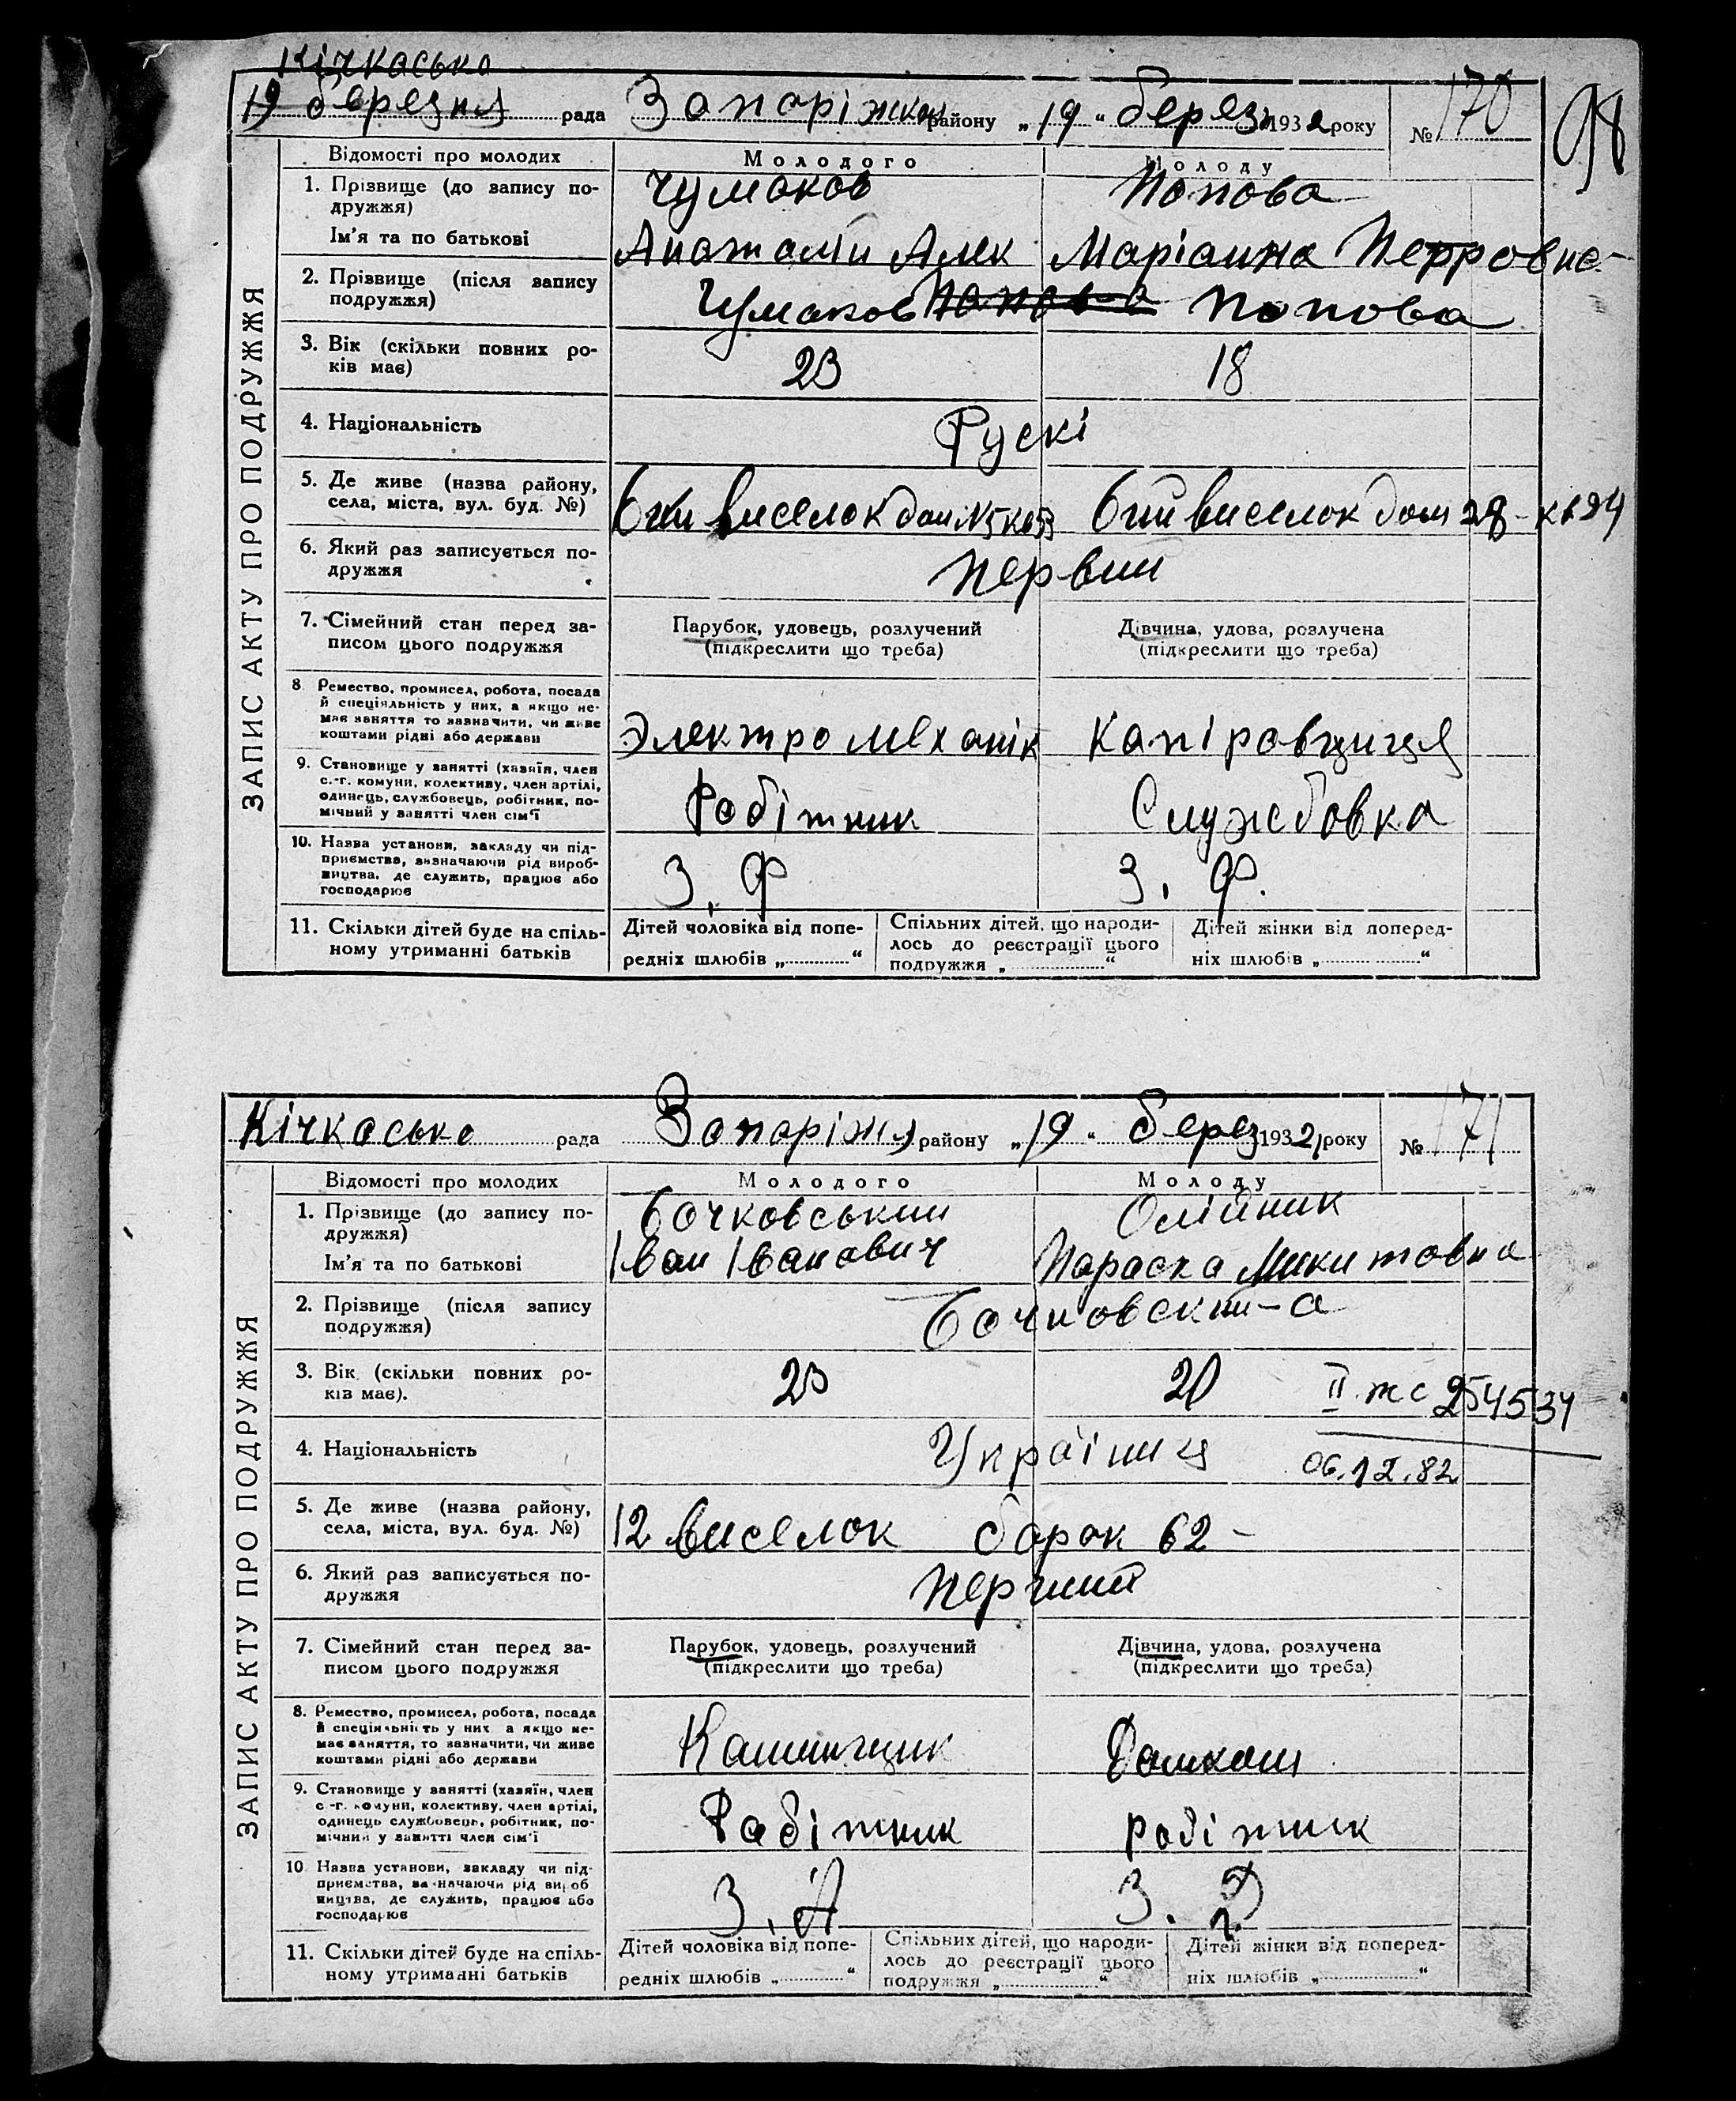 Кічкасько
19 березня рада Запоріжжя району „19“ берез 1932 року № 170
98
ЗАПИС АКТУ ПРО ПОДРУЖЖЯ
Відомості про молодих Молодого Молоду
1. Прізвище (до запису по- Чумаков Попова
дружжя)
Ім'я та по батькові Анатолій Алек Маріанна Петровна
2. Прізвище (після запису Чумаков Попова Попова
подружжя)
3. Вік (скільки повних ро- 23 18
ків має)
4. Національність Рускі
5. Де живе (назва району,
села, міста, вул. буд. №) 6ий виселок дом №5 кв 53 6ий виселок дом 28 - кв 24
6. Який раз записується по- первий
дружжя
7. Сімейний стан перед за- Парубок, удовець, розлучений Дівчина, удова, розлучена
писом цього подружжя (підкреслити що треба) (підкреслити що треба)
8 Ремество, промисел, робота, посада
й спеціяльність у них, а якщо не-
має заняття то зазначити, чи живе
коштами рідні або держави Электромеханік Капіровщиця
9. Становище у занятті (хазяїн, член
с.-г. комуни, колективу, член артілі,
одинець, службовець, робітник, по- Робітник Службовка
мічний у занятті член сім'ї
10. Назва установи, закладу чи під-
приємства, зазначаючи рід вироб-
ництва, де служить, працює або З. Ф З. Ф.
господарює
11. Скільки дітей буде на спіль- Дітей чоловіка від попе- Спільних дітей, що народи- Дітей жінки від поперед-
ному утриманні батьків редніх шлюбів „ “ лось до реєстрації цього ніх шлюбів „ “
подружжя „ “
Кічкасько рада Запоріжж району „19“ берез 1932 року № 171
ЗАПИС АКТУ ПРО ПОДРУЖЖЯ
Відомості про молодих Молодого Молоду
1. Прізвище (до запису по- Бочковський Олійник
дружжя)
Ім'я та по батькові Іван Іванович Параска Микитовна
2. Прізвище (після запису Бочковский-а
подружжя)
3. Вік (скільки повних ро- 23 20 ІІ жс 254534
ків має).
4. Національність Україниц 06.12.82
5. Де живе (назва району,
села, міста, вул. буд. №) 12 виселок барак 62 -
6. Який раз записується по- перчий
дружжя
7. Сімейний стан перед за- Парубок, удовець, розлучений Дівчина, удова, розлучена
писом цього подружжя (підкреслити що треба) (підкреслити що треба)
8. Ремество, промисел, робота, посада
й спеціяльність у них а якщо не-
має заняття, то зазначити, чи живе Каминщик
коштами рідні або держави
9. Становище у занятті (хазяїн, член
с.-г. комуни, колективу, член артілі,
одинець службовець, робітник, по- Робітник робітник
мічний у занятті член сім'ї
10 Назва установи, закладу чи під-
приємства, зазначаючи рід вироб
ництва, де служить, працює або З. З.
господарює
11. Скільки дітей буде на спіль- Дітей чоловіка від попе- Спільних дітей, що народи- Дітей жінки від поперед-
ному утриманні батьків редніх шлюбів „ “ лось до реєстрації цього ніх шлюбів „ “
подружжя „ “